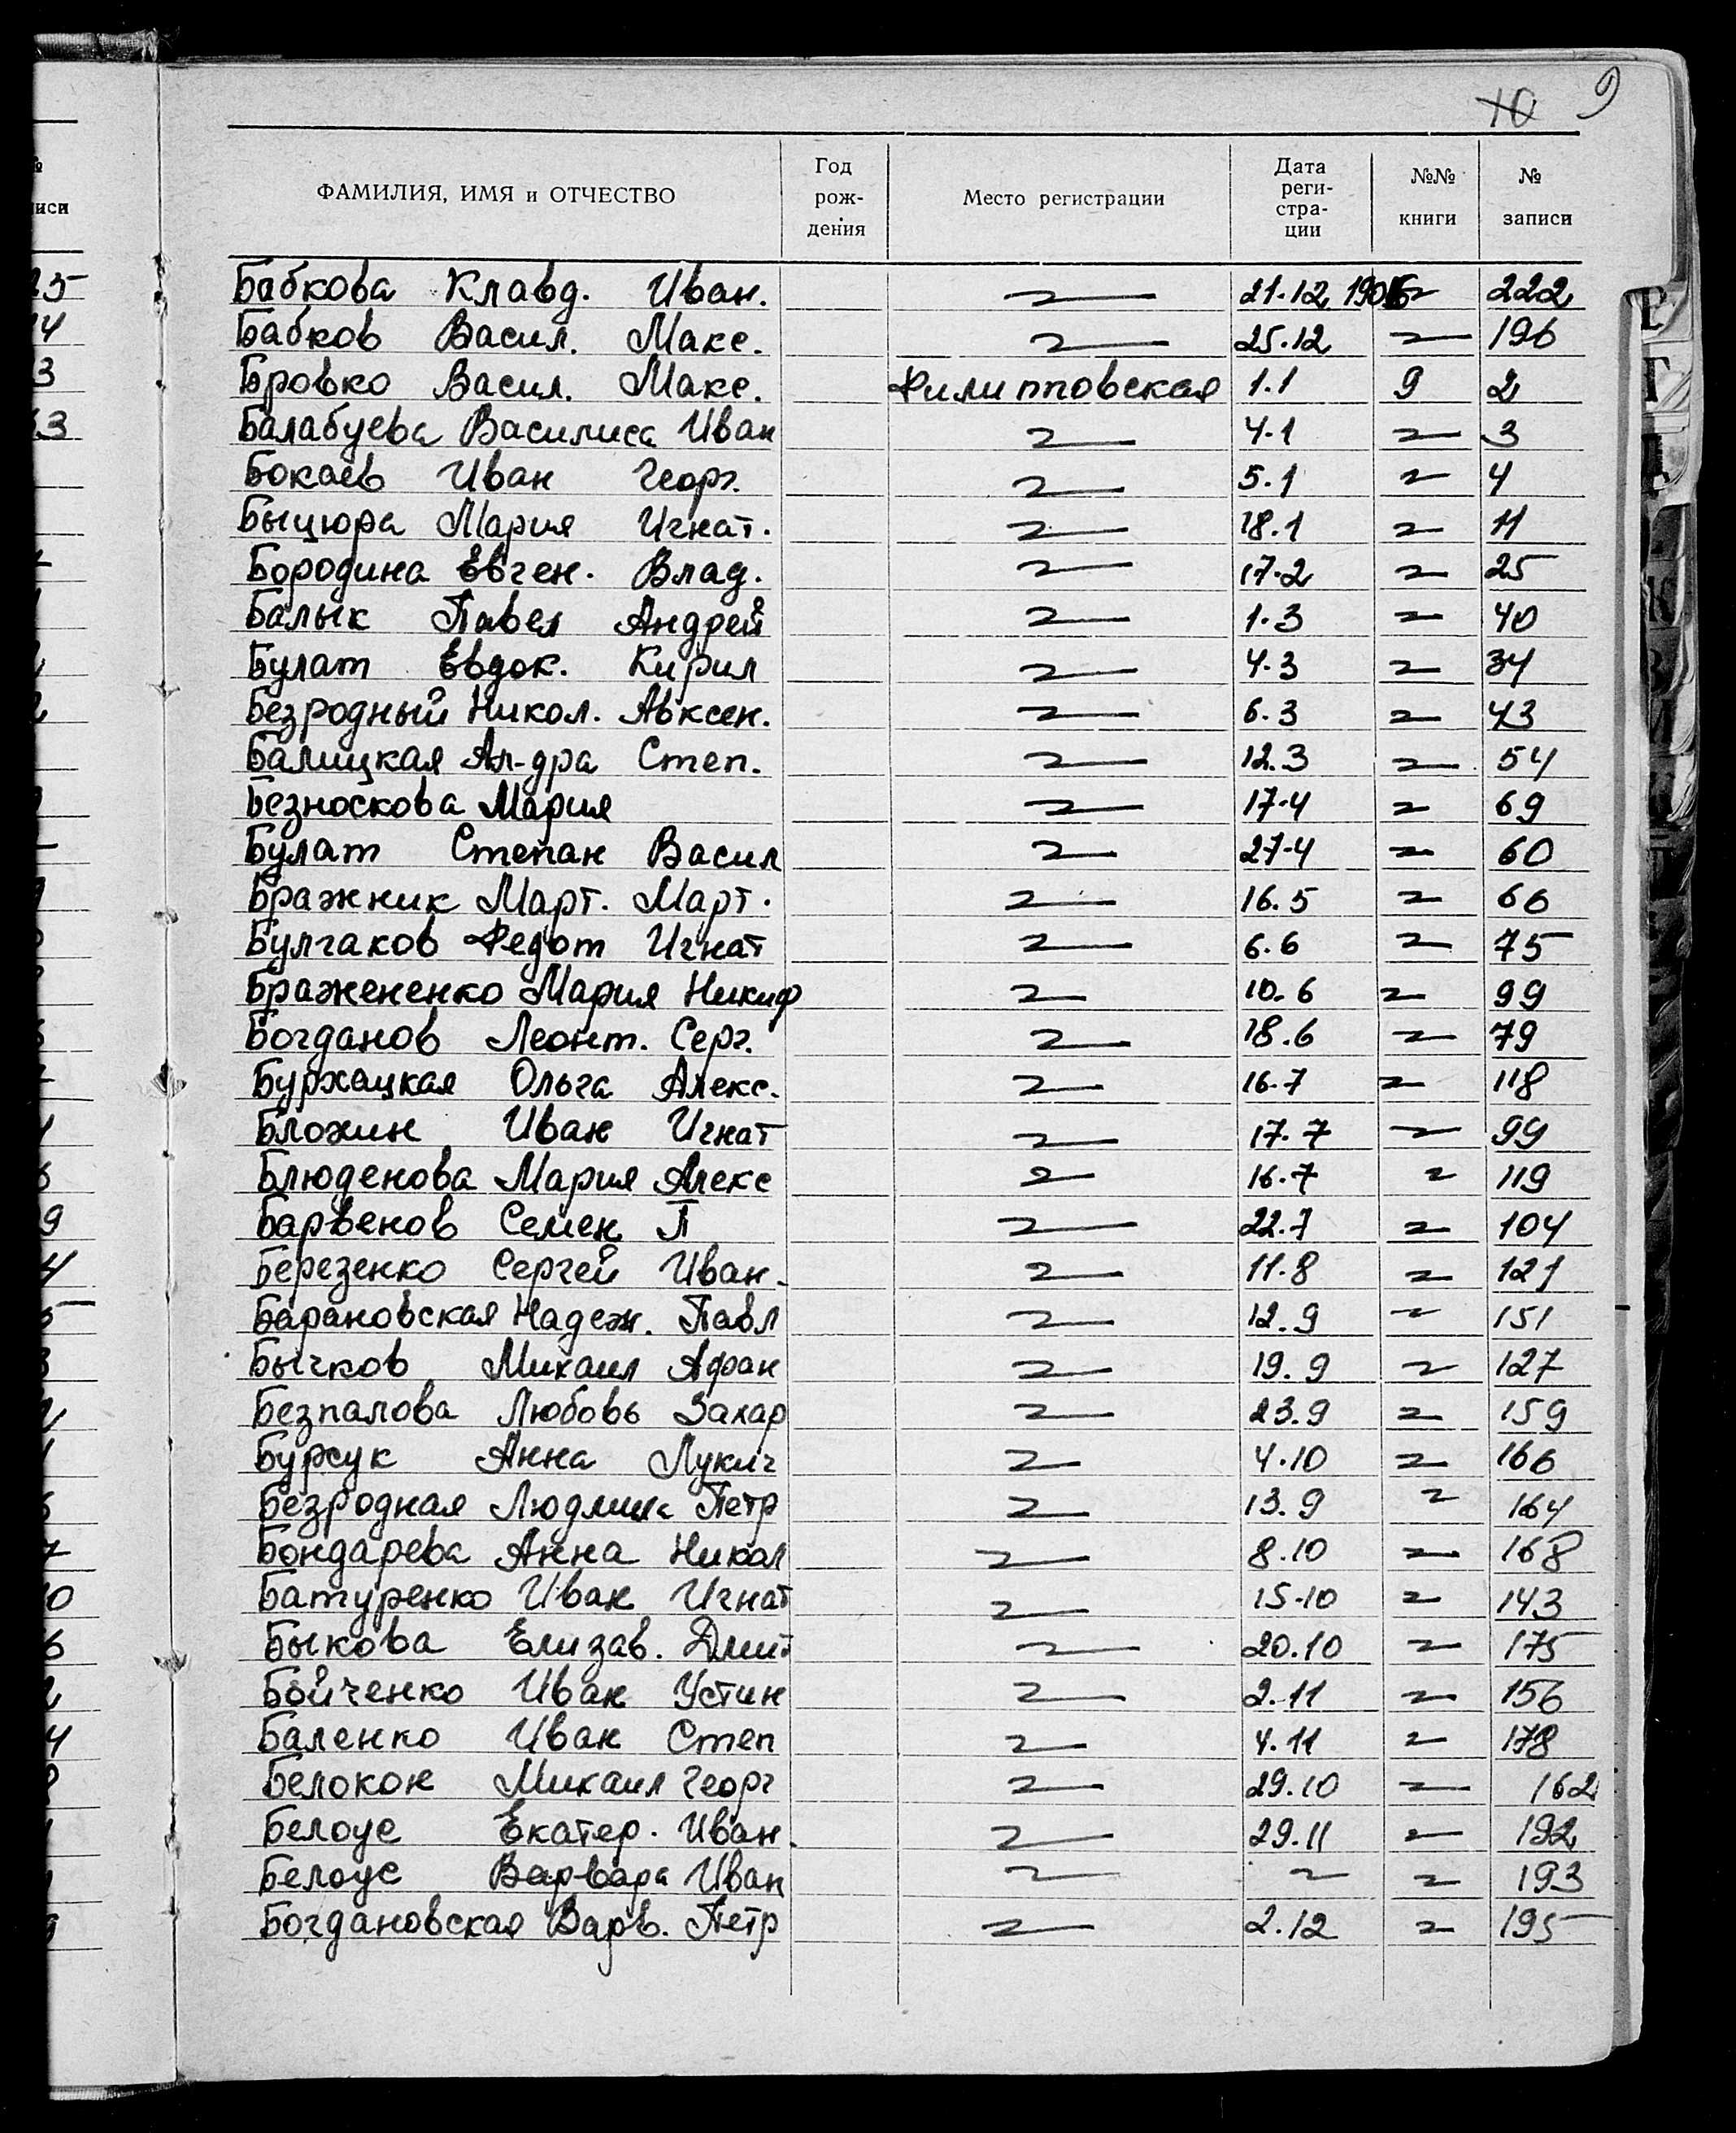 10 9
ФАМИЛИЯ, ИМЯ и ОТЧЕСТВО Год рож- дения Место регистрации Дата реги- стра- ции №№ книги № записи
Бабкова Клавд. Иван. 21.12 222
Бабков Васил. Макс. 25.12 196
Бровко Васил. Макс. Филипповская 1.1 9 2
Балабуева Василиса Иван 4.1 3
Бокаев Иван Георг. 5.1 4
Быцюра Мария Игнат. 18.1 11
Бородина Евген. Влад. 17.2 25
Балык Павел Андрей 1.3 40
Булат Евдок. Кирил 4.3 34
Безродный Никол. Авксен. 6.3 43
Балицкая Ал-дра Степ. 12.3 54
Безноскова Мария 17.4 69
Булат Степан Васил 27.4 60
Бражник Март. Март. 16.5 66
Булгаков Федот Игнат 6.6 75
Бражененко Мария Никиф 10.6 99
Богданов Леонт. Серг. 18.6 79
Бурхацкая Ольга Алекс. 16.7 118
Бложин Иван Игнат 17.7 99
Блюденова Мария Алекс 16.7 119
Барвенов Семен П 22.7 104
Березенко Сергей Иван. 11.8 121
Барановская Надеж. Павл 12.9 151
Бычков Михаил Афан 19.9 127
Безпалова Любовь Захар 23.9 159
Бурсук Анна Лукич 4.10 166
Безродная Людмила Петр 13.9 164
Бондарева Анна Никол 8.10 168
Батуренко Иван Игнат 15.10 143
Быкова Елизав. Дмит 20.10 175
Бойченко Иван Устин 2.11 156
Баленко Иван Степ 4.11 178
Белокон Михаил Георг 29.10 162
Белоус Екатер. Иван. 29.11 192
Белоус Варвара Иван 193
Богдановская Варв. Петр 2.12 195